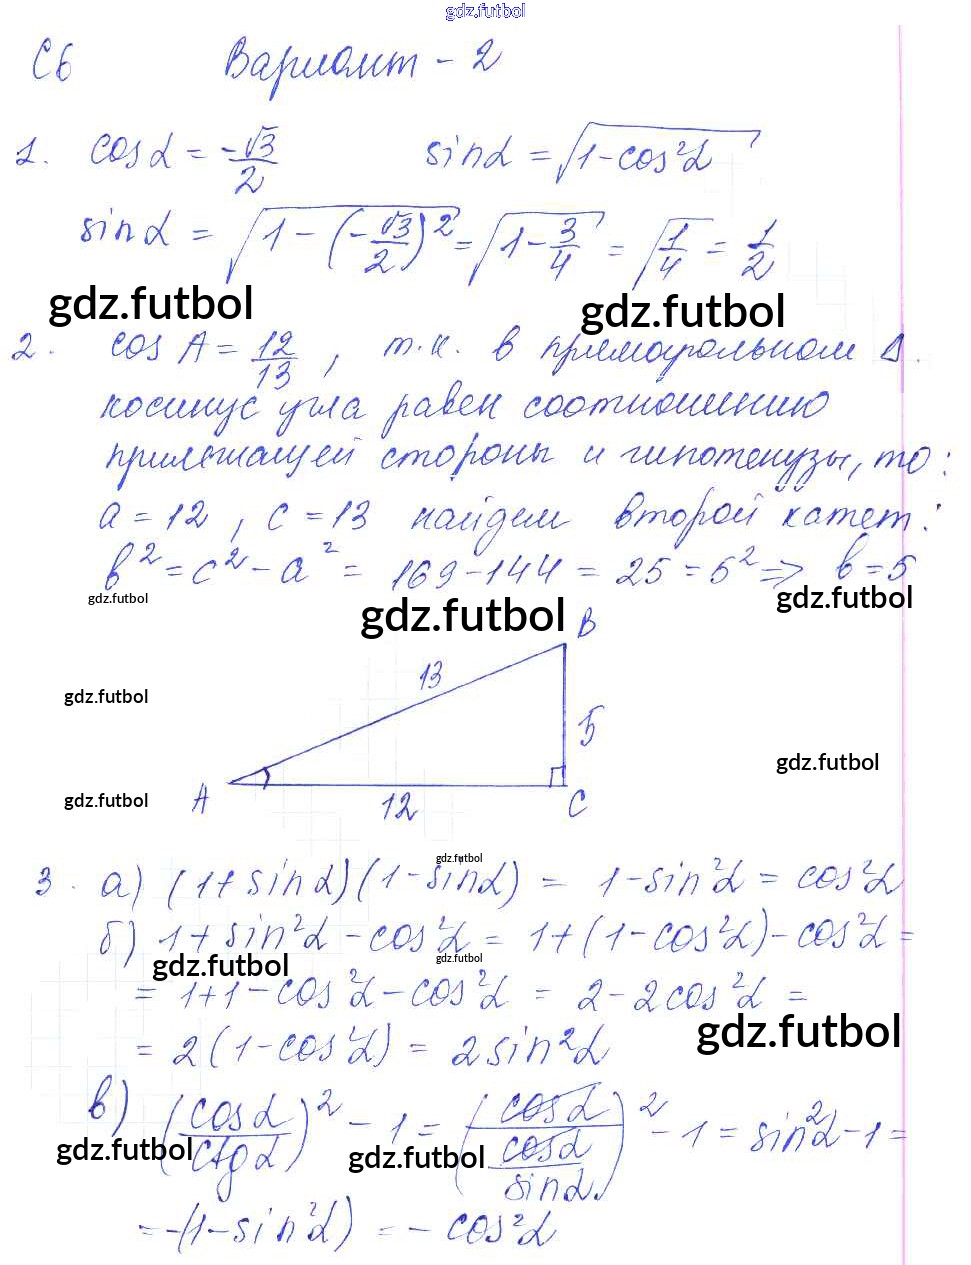 gdz.futbol
С6 Вариант - 2
1. cosα = -√3/2 sinα = √(1-cos²α)
sinα = √(1-(-√3/2)²) = √(1-3/4) = √(1/4) = 1/2
gdz.futbol gdz.futbol
2. cos A = 12/13, т.к. в прямоугольном Δ.
косинус угла равен соотношению
прилежащей стороны и гипотенузы, то:
a = 12, c = 13 найдем второй катет:
b² = c² - a² = 169 - 144 = 25 = 5² => b = 5
gdz.futbol gdz.futbol gdz.futbol
B
13
gdz.futbol
5
gdz.futbol
A 12 C
gdz.futbol
gdz.futbol
3. а) (1+sinα)(1-sinα) = 1-sin²α = cos²α
б) 1+sin²α-cos²α = 1+(1-cos²α)-cos²α =
gdz.futbol gdz.futbol
= 1+1-cos²α-cos²α = 2-2cos²α =
gdz.futbol
= 2(1-cos²α) = 2sin²α
в) (cosα/ctgα)² - 1 = (cosα/(cosα/sinα))² - 1 = sin²α-1 =
gdz.futbol gdz.futbol
= -(1-sin²α) = -cos²α